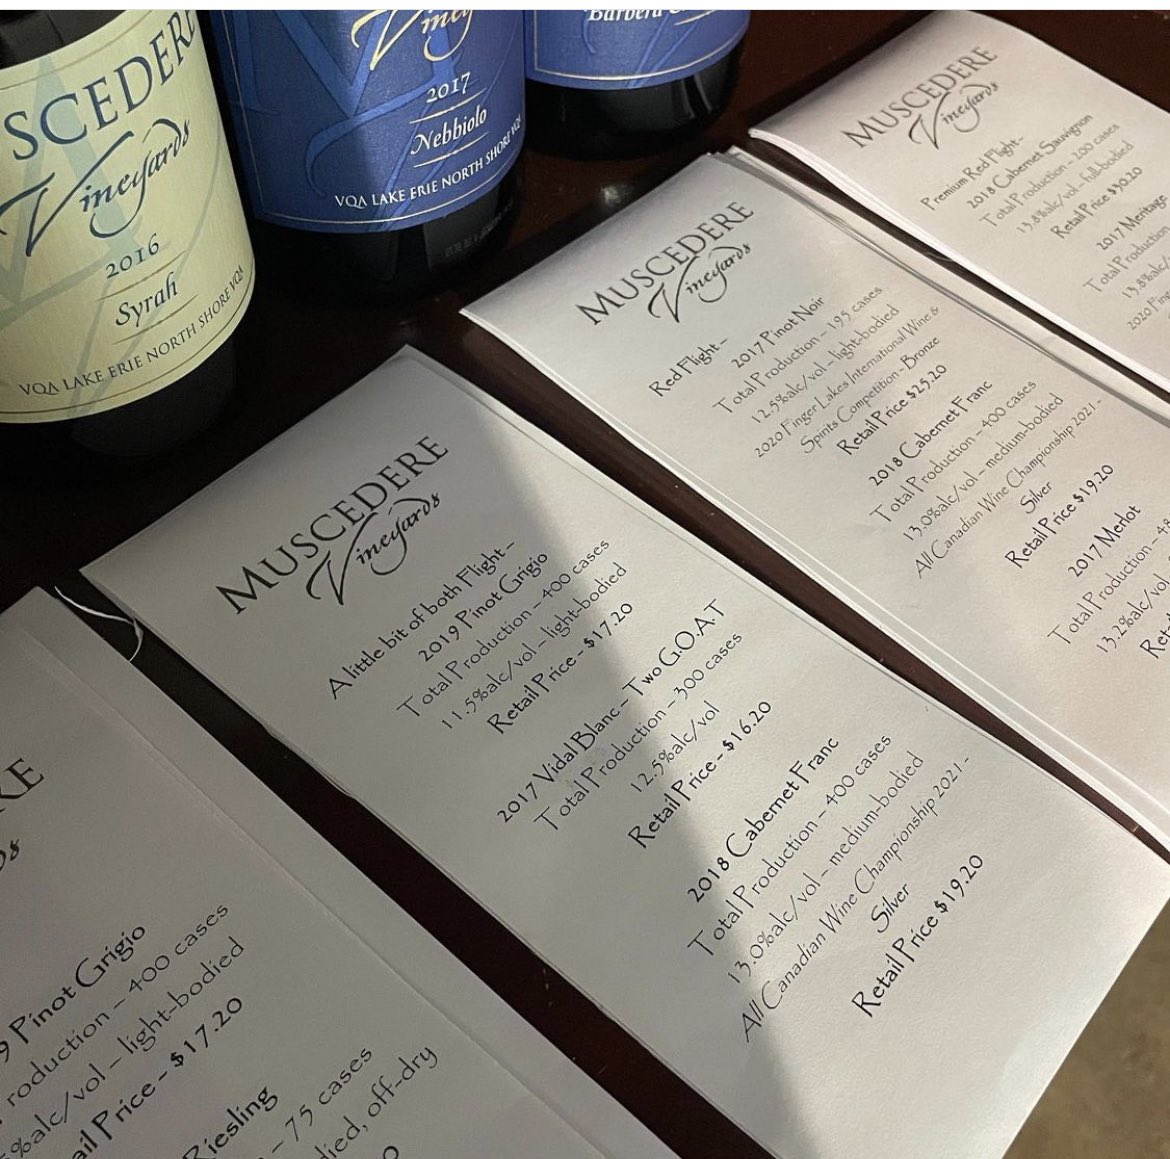 SCEDERE
Vineyards
2016
Syrah
VQA LAKE ERIE NORTH SHORE VQA
2017
Nebbiolo
VQA LAKE ERIE NORTH SHORE VQA
Barbera
MUSCEDERE
Vineyards
Premium Red Flight-
2018 Cabernet Sauvignon
Total Production – 200 cases
13.8%alc/vol – full-bodied
Retail Price $30.20
2017 Meritage
Total Production
13.8%alc/
2020 Fin
MUSCEDERE
Vineyards
Red Flight –
2017 Pinot Noir
Total Production – 195 cases
12.5%alc/vol – light-bodied
2020 Finger Lakes International Wine &
Spirits Competition - Bronze
Retail Price $25.20
2018 Cabernet Franc
Total Production – 400 cases
13.0%alc/vol – medium-bodied
All Canadian Wine Championship 2021 -
Silver
Retail Price $19.20
2017 Merlot
Total Production – 48
13.2%alc/vol
Ret
MUSCEDERE
Vineyards
A little bit of both Flight –
2019 Pinot Grigio
Total Production – 400 cases
11.5%alc/vol – light-bodied
Retail Price - $17.20
2017 Vidal Blanc – Two G.O.A.T
Total Production – 300 cases
12.5%alc/vol
Retail Price - $16.20
2018 Cabernet Franc
Total Production – 400 cases
13.0%alc/vol – medium-bodied
All Canadian Wine Championship 2021 -
Silver
Retail Price $19.20
RE
ds
9 Pinot Grigio
roduction – 400 cases
5%alc/vol – light-bodied
ail Price - $17.20
Riesling
– 75 cases
died, off-dry